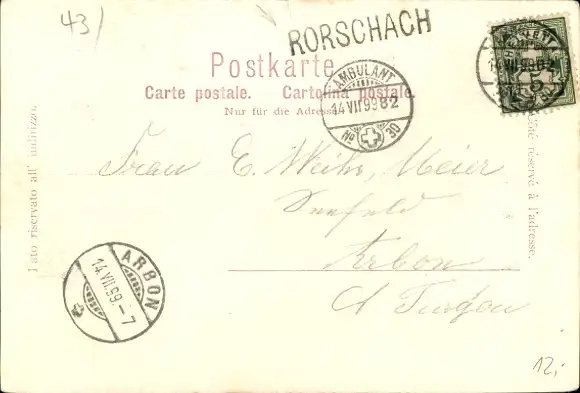 43/
RORSCHACH
Postkarte
Carte postale. Cartolina postale.
Nur für die Adresse
AMBULANT
14 VII 99 82
No 30
5
Lato riservato all' indirizzo.
Côté réservé à l'adresse.
Frau E. Weihs, Meier
Seefeld
Arbon
Ct Turgau
ARBON
14.VII.99.-7
12,-